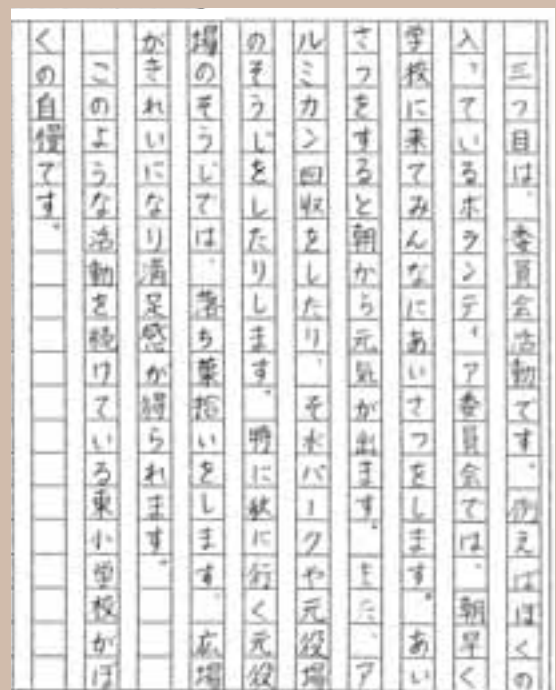 三つ目は、委員会活動です。例えばぼくの
入っているボランティア委員会では、朝早く
学校に来てみんなにあいさつをします。あい
さつをすると朝から元気が出ます。また、ア
ルミカン回収をしたり、そ水パークや元役場
のそうじをしたりします。特に秋に行く元役
場のそうじでは、落ち葉拾いをします。広場
がきれいになり満足感が得られます。
このような活動を続けている東小学校がぼ
くの自慢です。